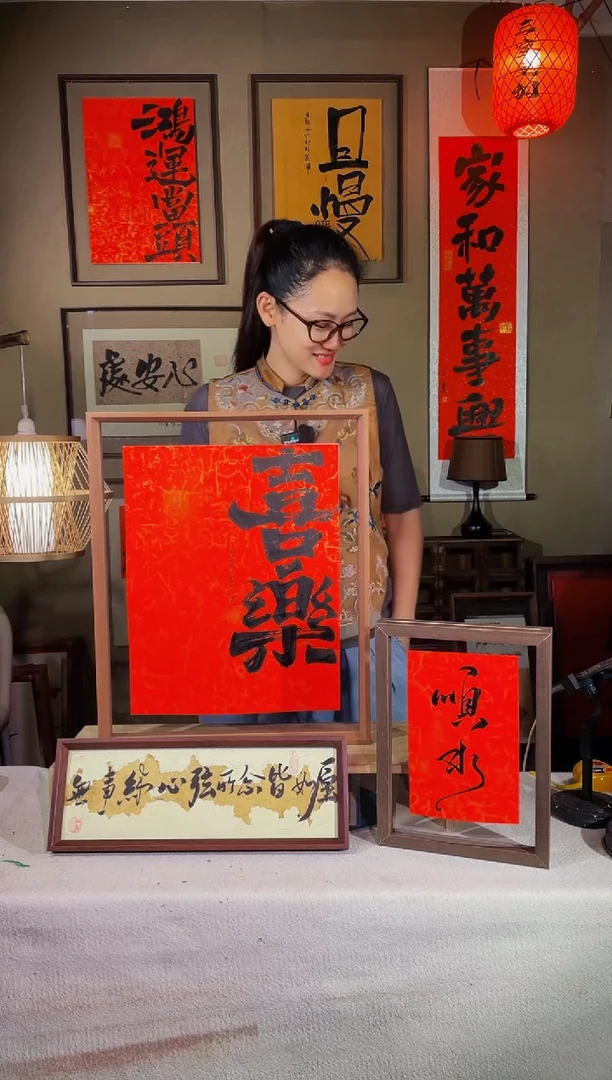 鴻運當頭
且慢
家和萬事興
心安處
喜樂
順水
無事絆心弦所念皆如愿